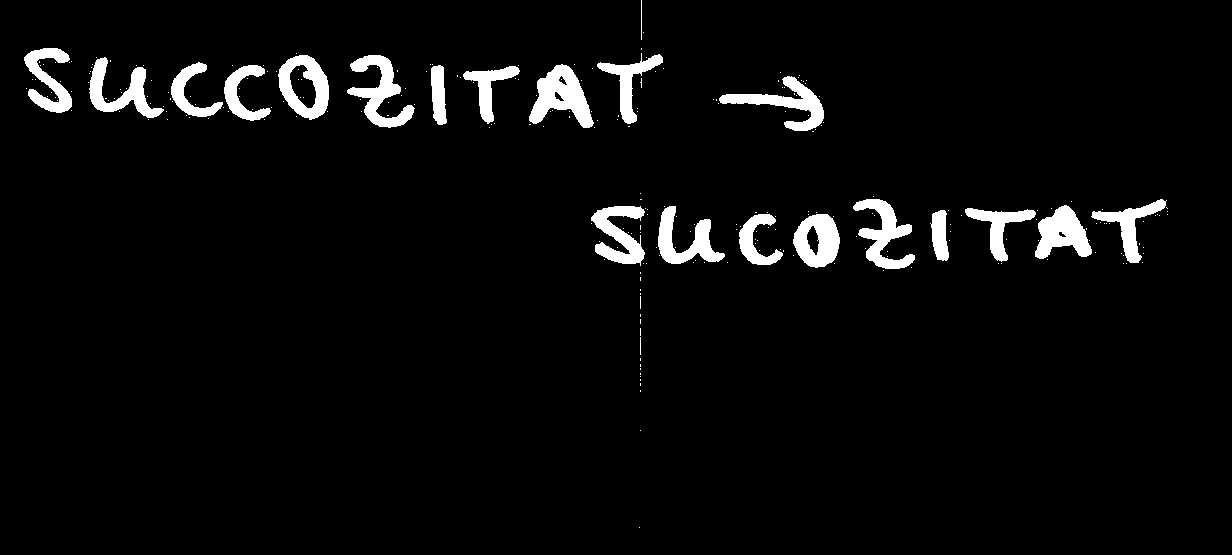 SUCCOZITAT →
SUCOZITAT